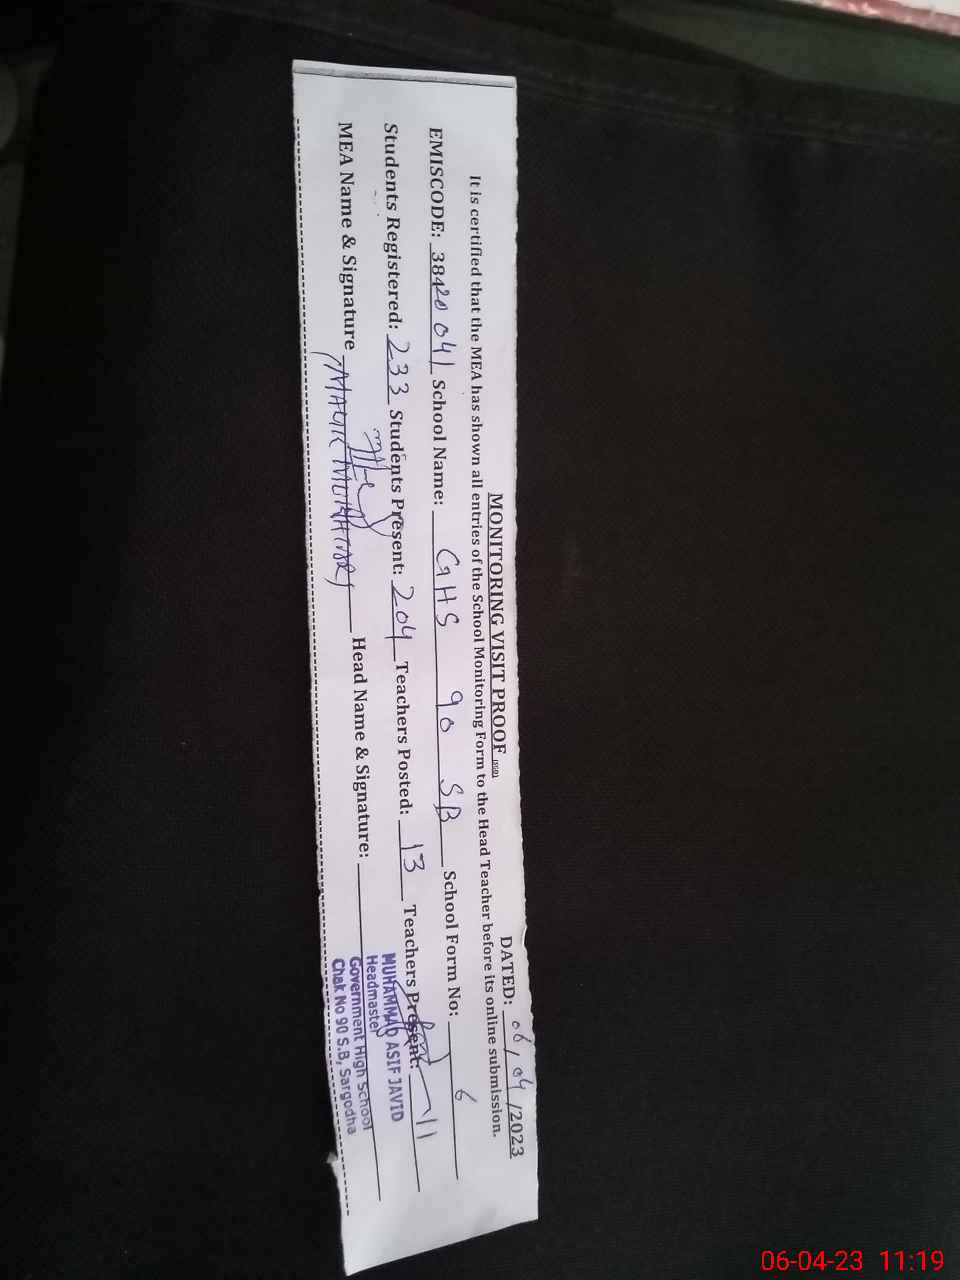 MONITORING VISIT PROOF
DATED: 06/04/2023
It is certified that the MEA has shown all entries of the School Monitoring Form to the Head Teacher before its online submission.
EMISCODE: 38420041 School Name: GHS 90 SB School Form No: 6
Students Registered: 233 Students Present: 204 Teachers Posted: 13 Teachers Present: 11
MEA Name & Signature Head Name & Signature:
MUHAMMAD ASIF JAVID
Headmaster
Government High School
Chak No 90 S.B, Sargodha
06-04-23 11:19